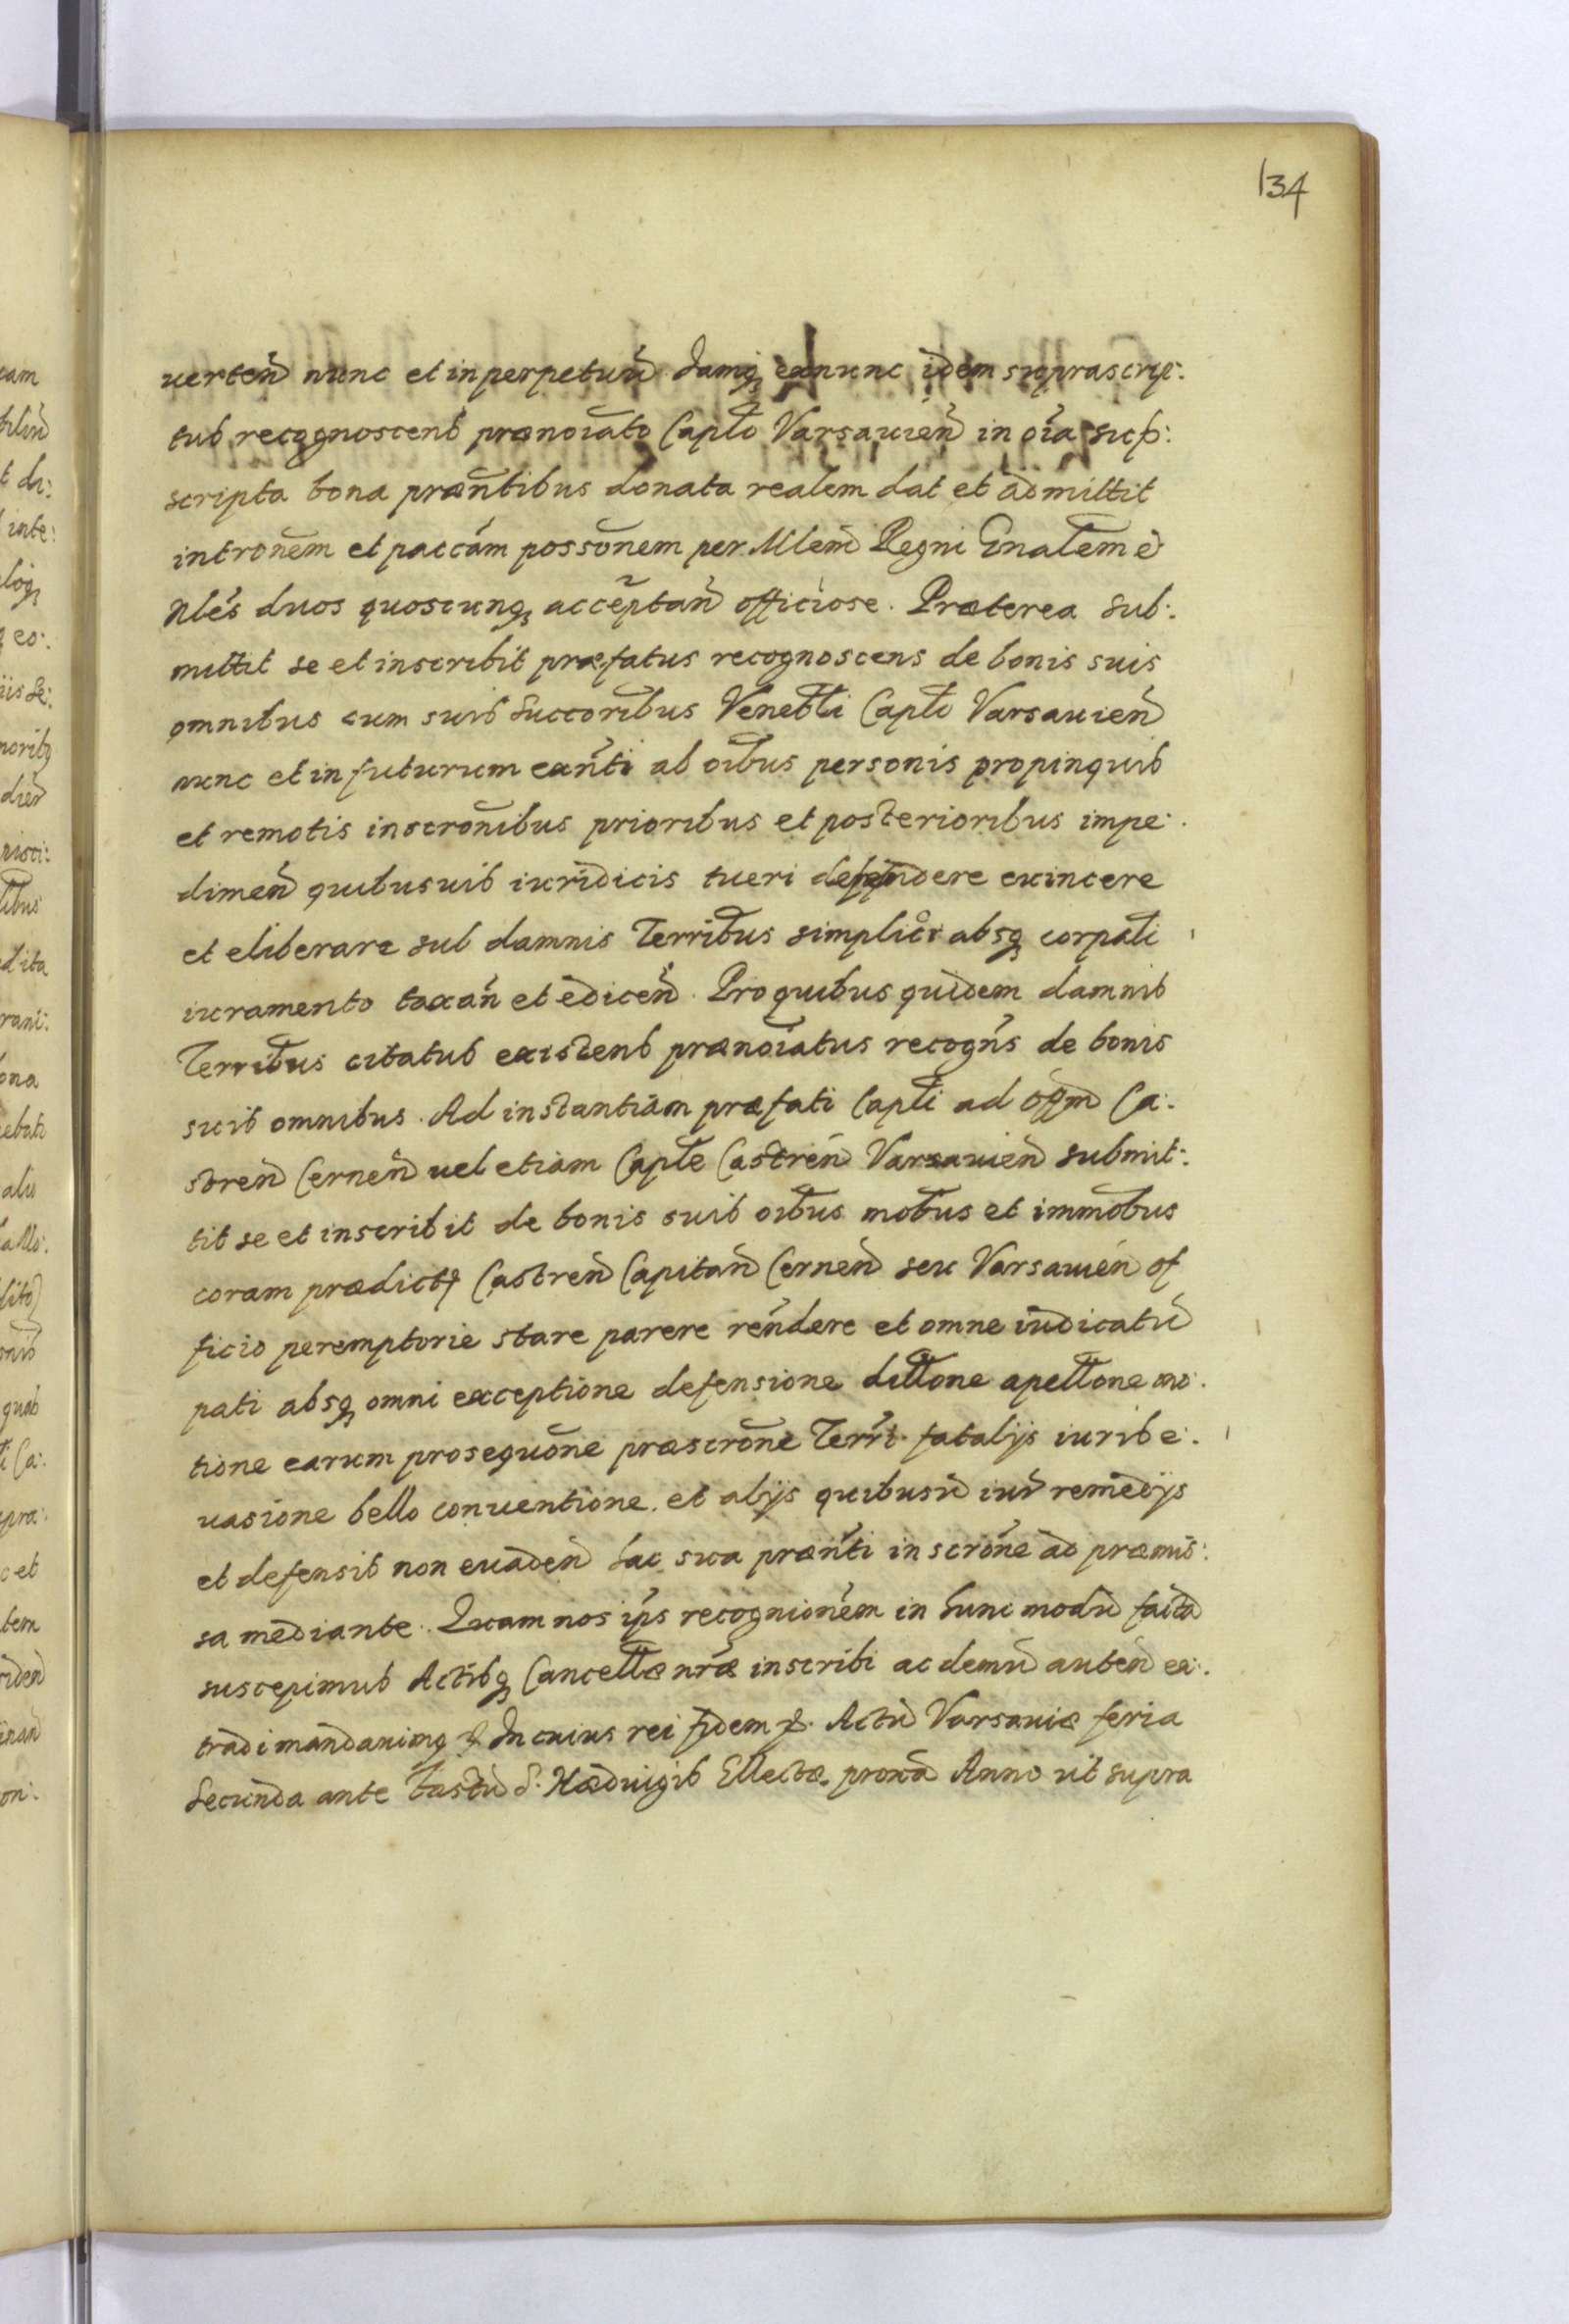 134
uerteñ nunc et in perpetuũ Jamq̨ exnunc idem suprascrip:
tus recognoscens prænoĩato Capĺo Varsauieñ in oĩa sup:
scripta bona præñtibus donata realem dat et admittit
intronẽm et paccãm possonẽm per Mlem̃ Regni Gnalẽm è
Nlẽs duos quoscunq̨ acceptañ officiose. Præterea sub:
mittit se et inscribit præfatus recognoscens de bonis suis
omnibus cum suis Succoribus Venebl̃i Capl̃o Varsauieñ
nunc et in futurum exñti ab oĩbus personis propinquis
et remotis inscronĩbus prioribus et posterioribus impe:
dimeñ quibusuis iuridicis tueri defendere euincere
et eliberare sub damnis Terribũs simplicr̃ absq̨ corpali
iuramento taxañ et ediceñ. Pro quibus quidem damnis
Terribũs citatus existens prænoĩatus recogñs de bonis
suis omnibus. Ad instantiam præfati Capl̃i ad Offm̃ Ca:
streñ Cerneñ uel etiam Capl̃e Castreñ Varsauieñ submit:
tit se et inscribit de bonis suis oĩbus mobũs et immobũs
coram prædicto Castreñ Capitañ Cerneñ seu Varsauieñ of
ficio peremptorie stare parere reñdere et omne iudicatũ
pati absq̨ omni exceptione defensione dill̃one apell̃one mo:
tione earum prosequõne præscrõne Terr̃i fatalijs iuris e:
uasione bello conuentione. et alijs quibusũ iur̃ remedijs
et defensis non euadeñ hac sua præñti inscrõne ad præmis:
sa mediante. Quam nos ip̃s recognionẽm in hunc modũ factã
suscepimus Actibq̨ Cancell̃æ nr̃æ inscribi ac demũ auteñ ex:
tradi mandauimq̨ In cuius rei fidem Actũ Varsauiæ feria
Secunda ante festũ S. Hæduigis Electæ proxã Anno ut supra